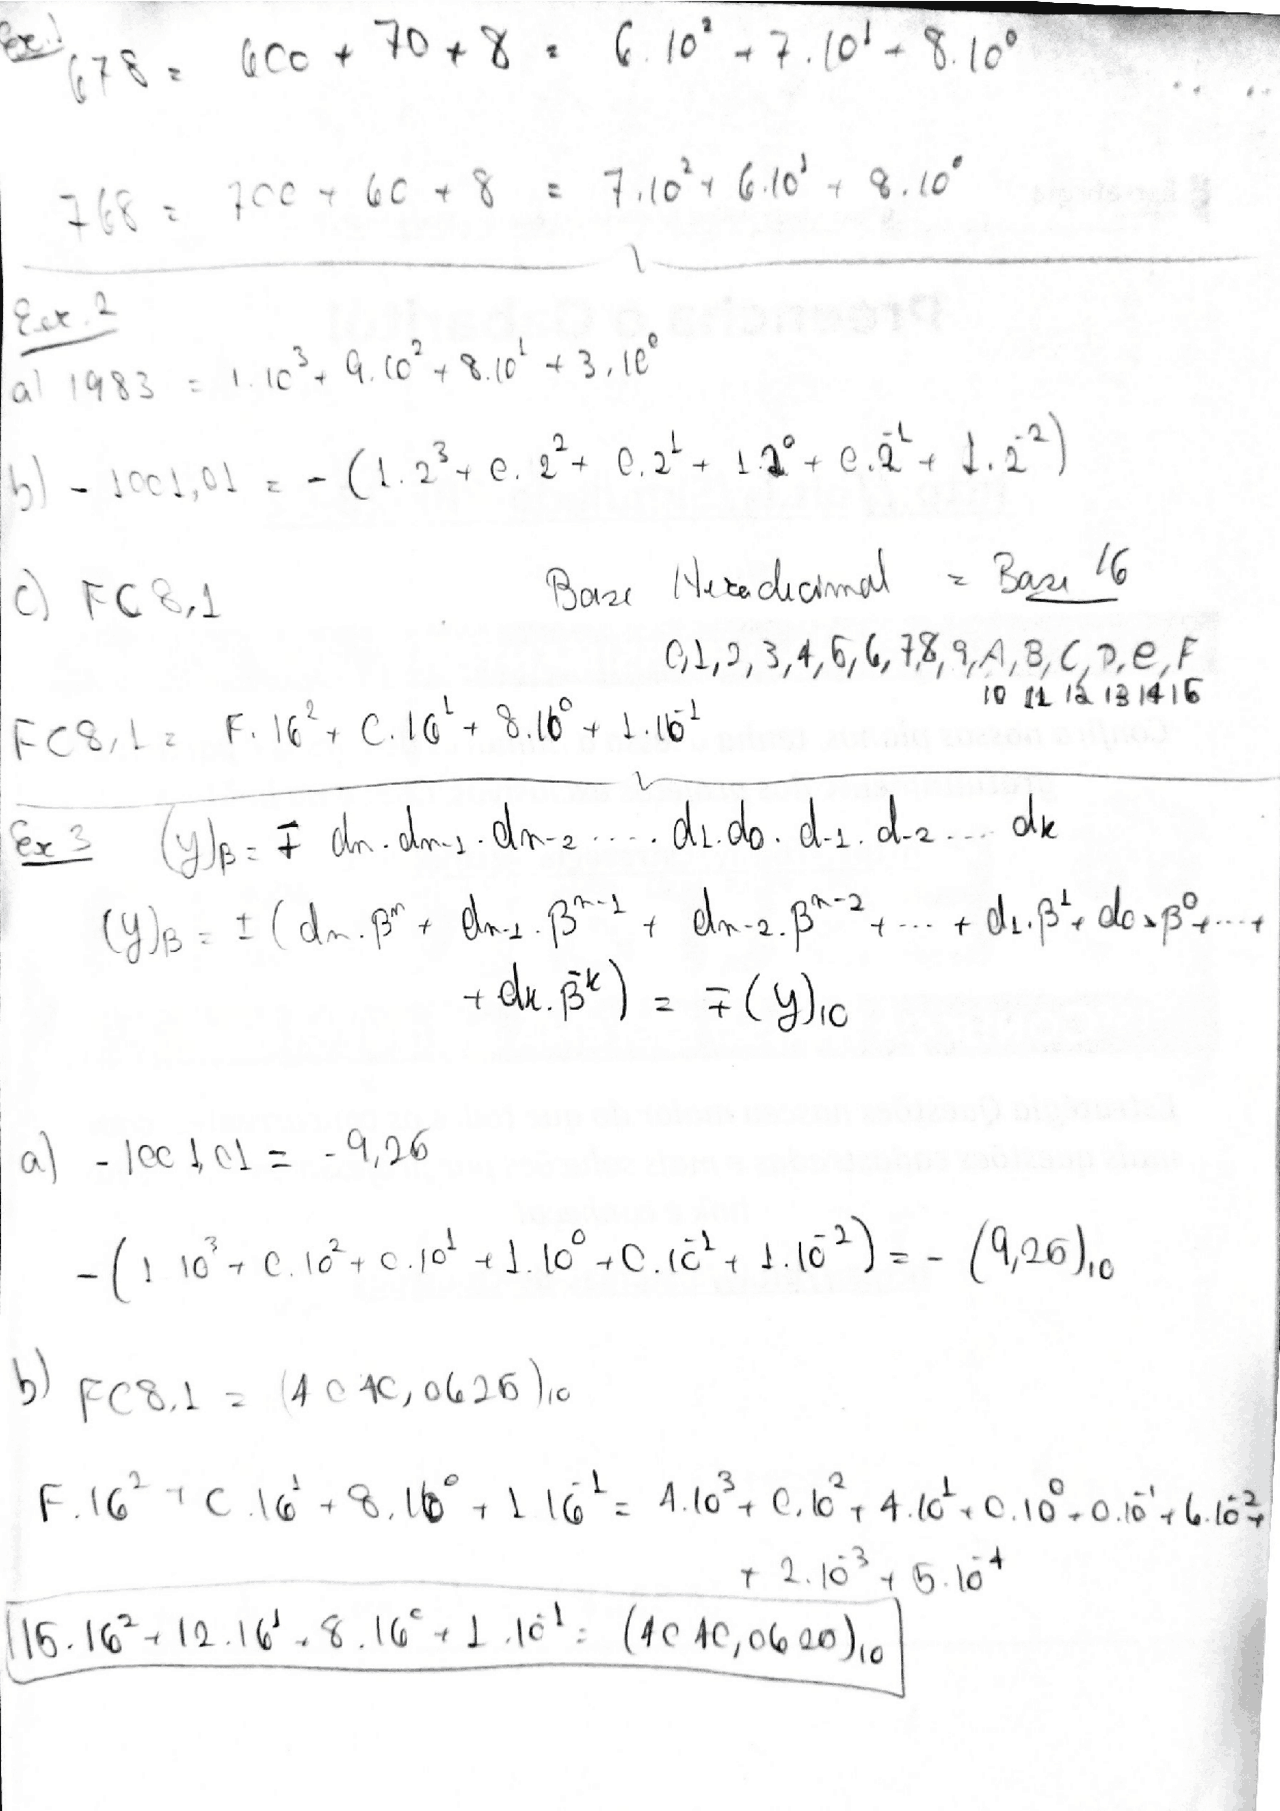 Ex.1
678 = 600 + 70 + 8 = 6.10² + 7.10¹ + 8.10⁰
768 = 700 + 60 + 8 = 7.10² + 6.10¹ + 8.10⁰
Ex.2
a) 1983 = 1.10³ + 9.10² + 8.10¹ + 3.10⁰
b) - 1001,01 = - (1.2³ + 0.2² + 0.2¹ + 1.2⁰ + 0.2⁻¹ + 1.2⁻²)
c) FC8,1 Base Hexadecimal = Base 16
0,1,2,3,4,5,6,7,8,9,A,B,C,D,e,F
10 11 12 13 14 15
FC8,1 = F.16² + C.16¹ + 8.16⁰ + 1.16⁻¹
Ex 3 (y)β = ∓ dn.dn-1.dn-2 ..... d1.d0.d-1.d-2 ... dk
(y)β = ± (dn.βⁿ + dn-1.βⁿ⁻¹ + dn-2.βⁿ⁻² + ... + d1.β¹ + d0.β⁰ + ... +
+ dk.β⁻ᵏ) = ∓ (y)10
a) - 1001,01 = - 9,25
- (1 10³ + 0.10² + 0.10¹ + 1.10⁰ + 0.10⁻¹ + 1.10⁻²) = - (9,25)10
b) FC8,1 = (4040,0625)10
F.16² + C.16¹ + 8.16⁰ + 1 16⁻¹ = 4.10³ + 0.10² + 4.10¹ + 0.10⁰ + 0.10⁻¹ + 6.10⁻² +
+ 2.10⁻³ + 5.10⁻⁴
15.16² + 12.16¹ + 8.16⁰ + 1.10⁻¹ = (4040,0620)10